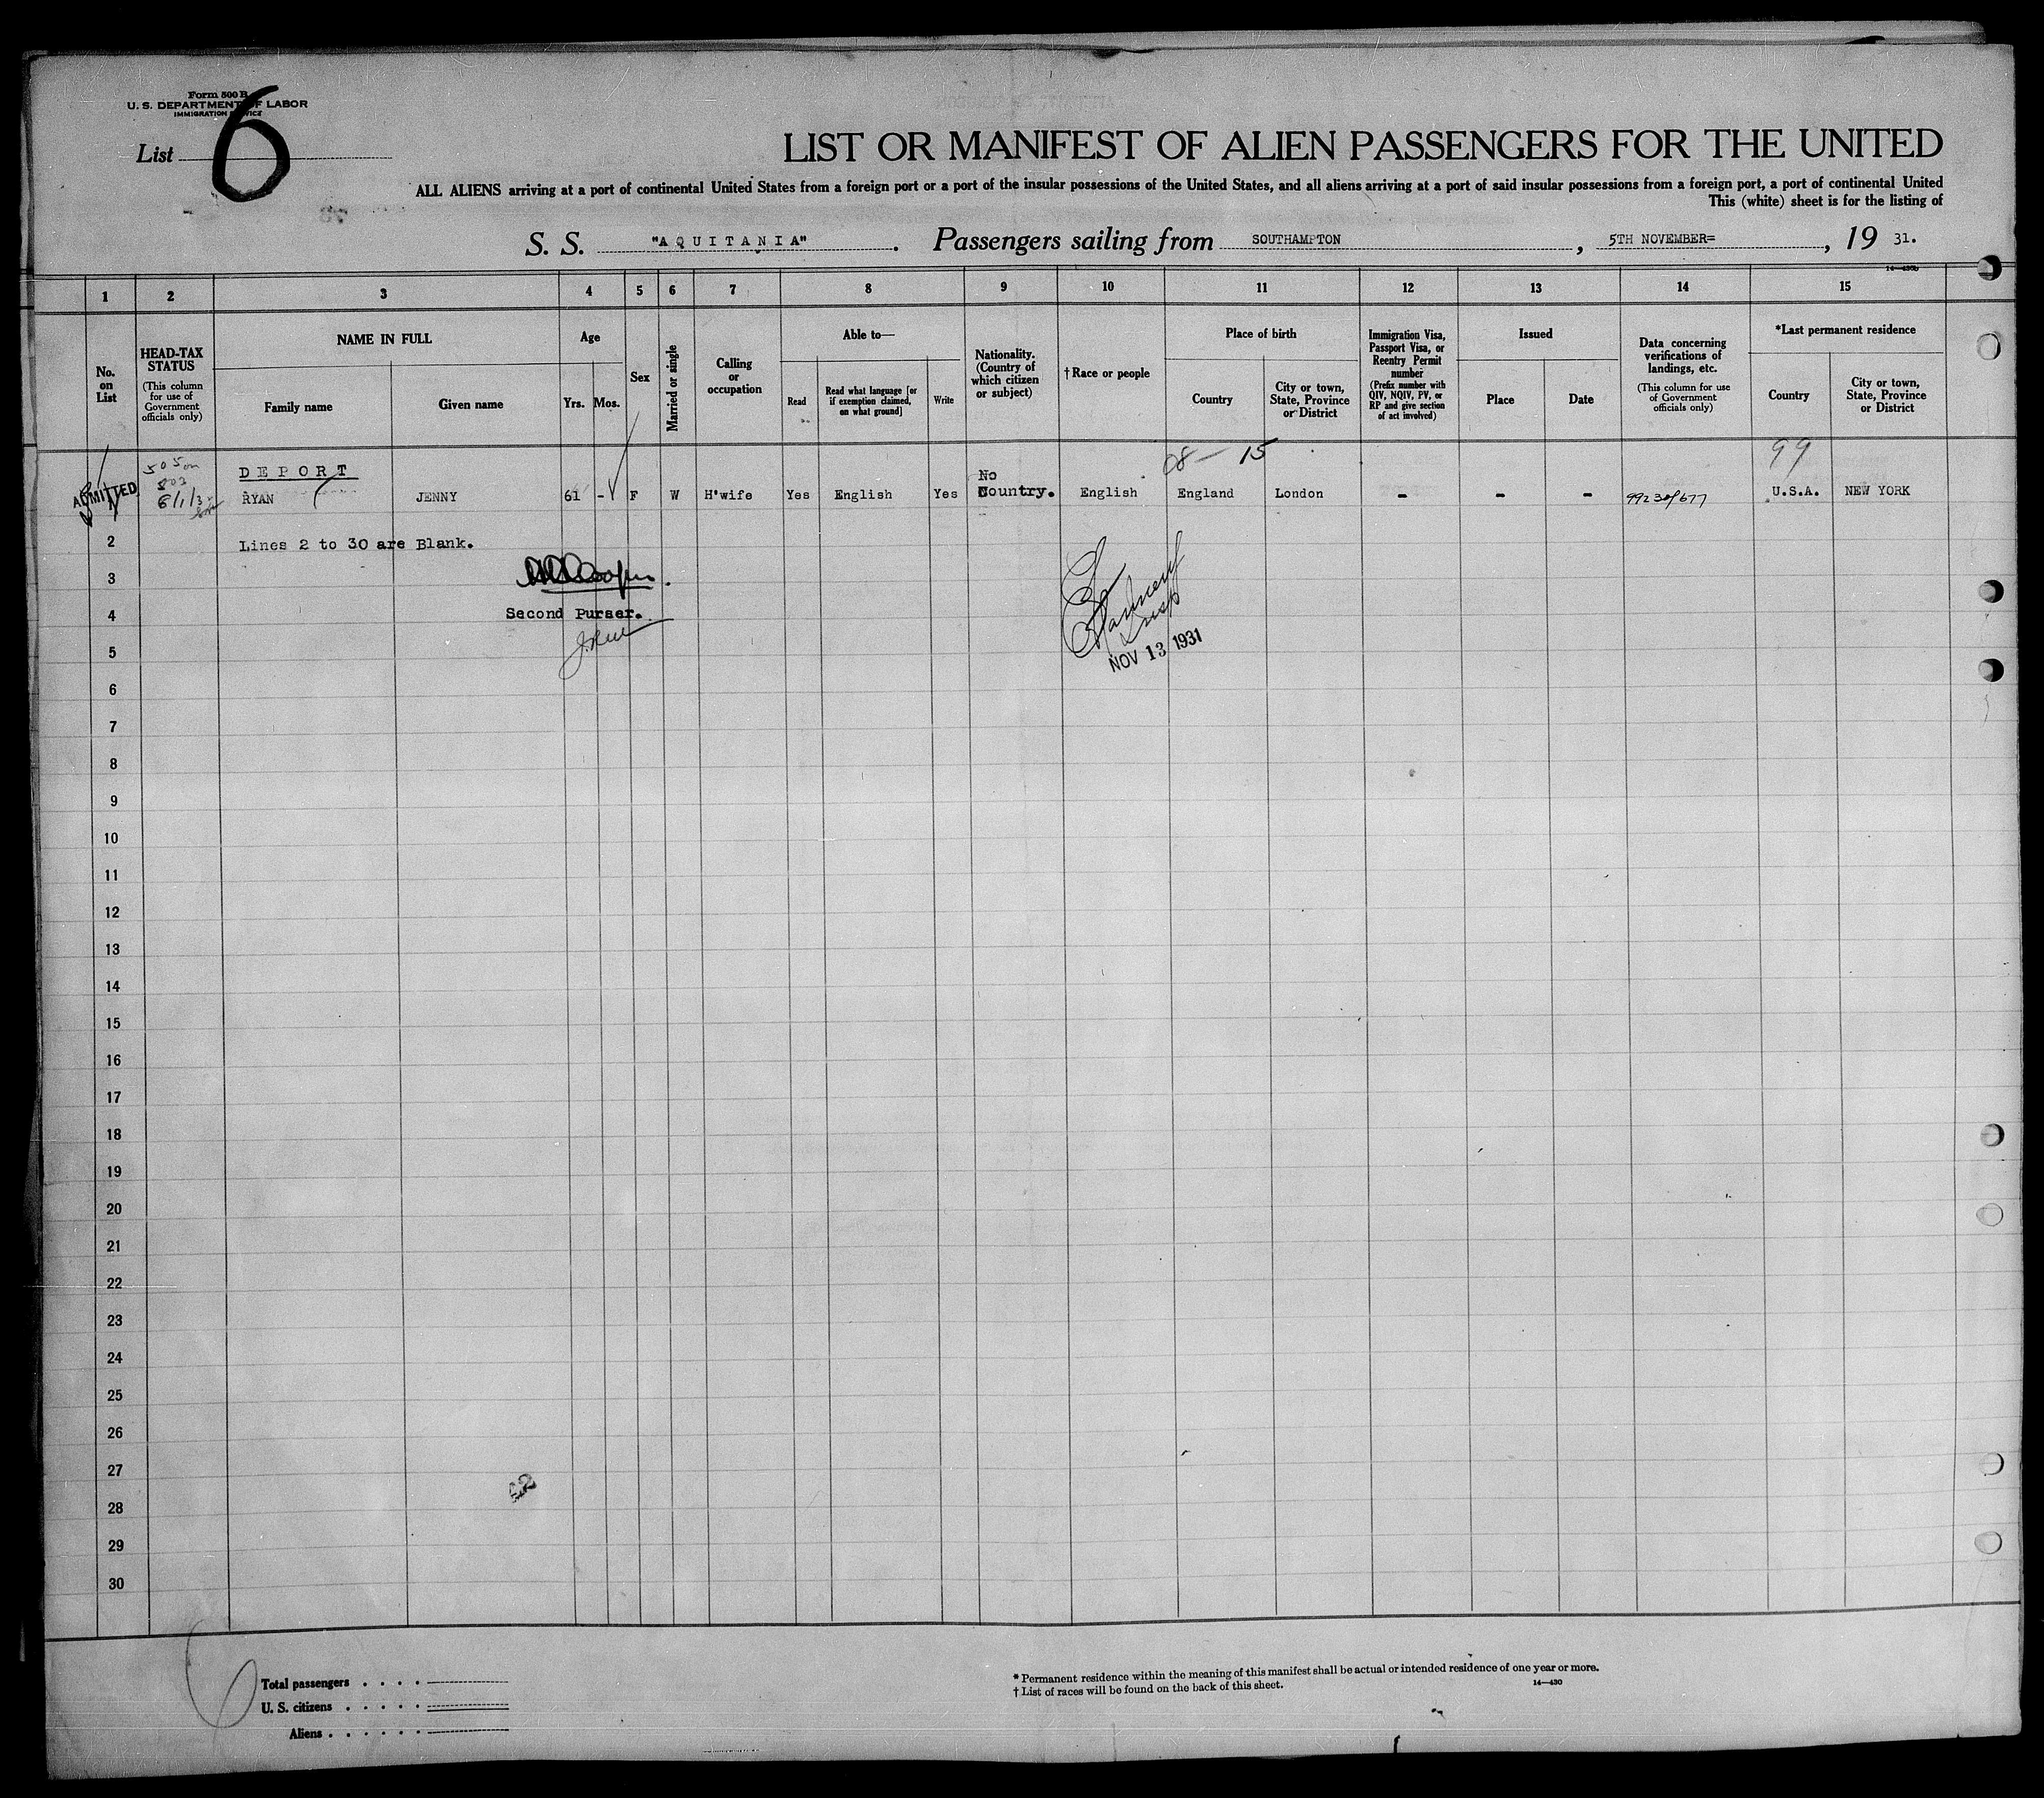 Form 500 B
U. S. DEPARTMENT OF LABOR
IMMIGRATION SERVICE
List 6
LIST OR MANIFEST OF ALIEN PASSENGERS FOR THE UNITED
ALL ALIENS arriving at a port of continental United States from a foreign port or a port of the insular possessions of the United States, and all aliens arriving at a port of said insular possessions from a foreign port, a port of continental United
This (white) sheet is for the listing of
S. S. "AQUITANIA" . Passengers sailing from SOUTHAMPTON , 5TH NOVEMBER= , 19 31.
14—430b
1 2 3 4 5 6 7 8 9 10 11 12 13 14 15
No. on List
HEAD-TAX STATUS (This column for use of Government officials only)
NAME IN FULL
Family name Given name
Age
Yrs. Mos.
Sex
Married or single
Calling or occupation
Able to—
Read
Read what language [or if exemption claimed, on what ground]
Write
Nationality. (Country of which citizen or subject)
†Race or people
Place of birth
Country
City or town, State, Province or District
Immigration Visa, Passport Visa, or Reentry Permit number (Prefix number with QIV, NQIV, PV, or RP and give section of act involved)
Issued
Place Date
Data concerning verifications of landings, etc. (This column for use of Government officials only)
*Last permanent residence
Country
City or town, State, Province or District
08 — 15 99
DEPORT
No
ADMITTED RYAN JENNY 61 - F W H'wife Yes English Yes Country. English England London - - - 99230/677 U.S.A. NEW YORK
2 Lines 2 to 30 are Blank.
3
4 Second Purser.
5
NOV 13 1931
6
7
8
9
10
11
12
13
14
15
16
17
18
19
20
21
22
23
24
25
26
27
28
29
30
Total passengers . . . .
U. S. citizens . . . . .
Aliens . . . . . .
* Permanent residence within the meaning of this manifest shall be actual or intended residence of one year or more.
† List of races will be found on the back of this sheet.
14—430